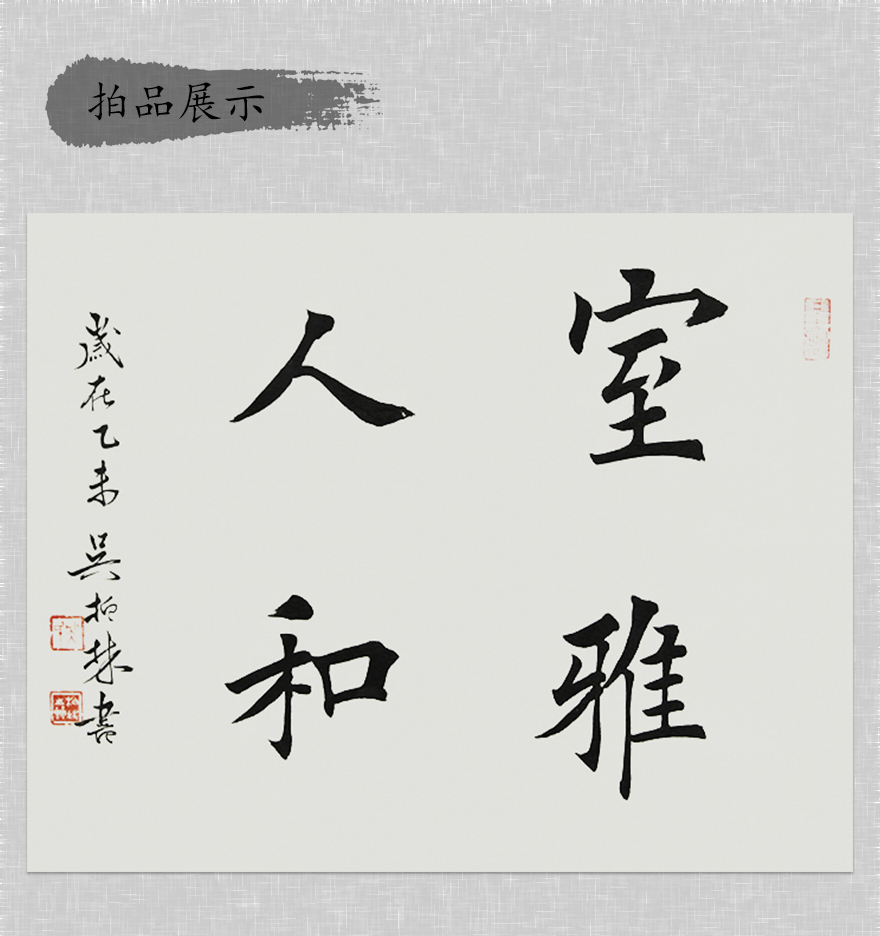 拍品展示
室雅
人和
歲在乙未 吳柏林書